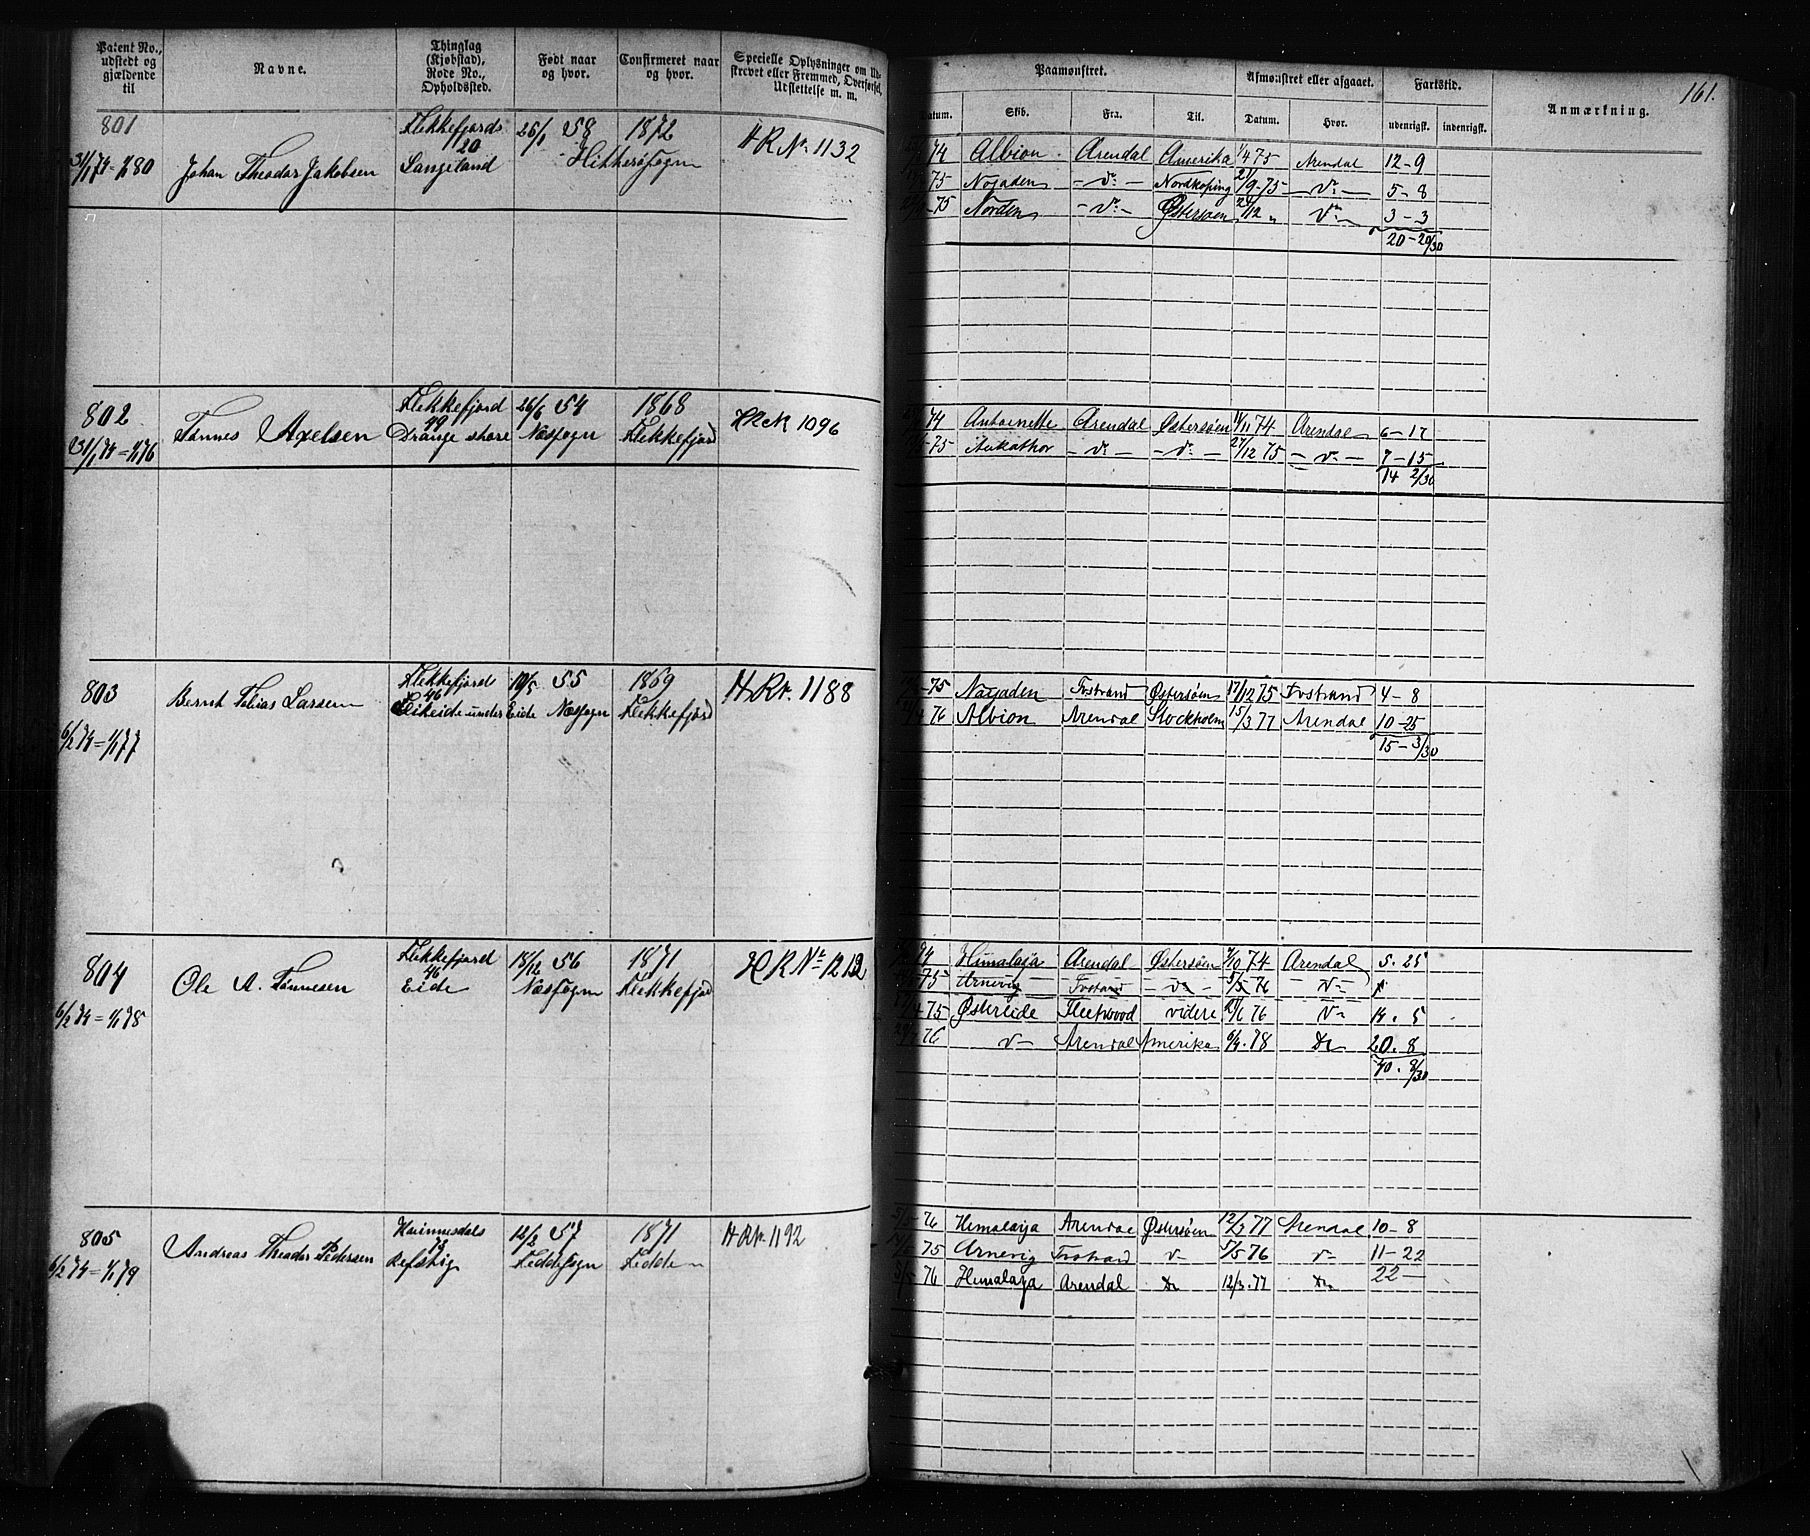 161.
Patent No., udstedt og gjældende til | Navne. | Thinglag (Kjøbstad), Rode No., Opholdssted. | Født naar og hvor. | Confirmeret naar og hvor. | Specielle Oplysninger om Ud-
skrevet eller Fremmed, Overførsel, Udslettelse m. m.
Paamønstret. | Afmønstret eller afgaaet. | Fartstid. | Anmærkning.
Datum. | Skib. | Fra. | Til. | Datum. | Hvor. | udenrigsk. | indenrigsk.
801 | Flekkefjords | 26/1 58 | 1872 | HR No. 1132
20
31/1 74 - 1/1 80 | Johan Theodor Jakobsen | Langeland | Hitterøsogn
74 | Albion | Arendal | Amerika | 1/4 75 | Arendal | 12-9
75 | Nojaden | - do - | Nordkøping | 21/9-75 | - do - | 5-8
75 | Norden | - do - | Østersøen | 21/12 " | do | 3-3
20-20/30
802 | Flekkefjord | 26/6 54 | 1868 | HR No 1096
49
31/1 74 = 1/1 76 | Tønnes Axelsen | Drange store | Næssogn | Flekkefjord
74 | Antoinette | Arendal | Østersøen | 1/11 74 | Arendal | 6-17
75 | Aukathor | - do - | - do - | 27/12 75 | - do - | 7-15
14 2/30
803 | Flekkefjord | 10/5 55 | 1869 | HR No. 1188
46
Bernt Tobias Larsen | Eikeide under Eide | Næssogn | Flekkefjord
6/2 74 = 1/1 77
75 | Nojaden | Tvstrand | Østersøen | 17/12 75 | Tvstrand | 4-8
76 | Albion | Arendal | Stockholm | 15/3 77 | Arendal | 10-25
15-3/30
804 | Flekkefjord | 18/12 56 | 1871 | HR No 1212
46
Ole A. Tønnesen | Eide | Næssogn | Flekkefjord
6/2 74 = 1/1 78
74 | Himalaja | Arendal | Østersøen | 7/10 74 | Arendal | 5.25
75 | Arnevig | Tvstrand | - do - | 5/5 76 | do
75 | Østereide | Fleetwood | videre | 76 | do | 14.5
76 | do | Arendal | Amerika | 6/4.78 | Do | 20.8
40.8/30
805 | 12/3 57 | 1871 | HR No. 1192
73
Andreas Theodor Pedersen | Refstig | Feddesogn | Fedde
6/2 74 = 1/1 79
5/5 76 | Himalaja | Arendal | Østersøen | 12/3 77 | Arendal | 10-8
75 | Arnevig | Tvstrand | do | 5/5 76 | do | 11-22
22 -
3/5 76 | Himalaja | Arendal | Do | 12/3.77 | Do